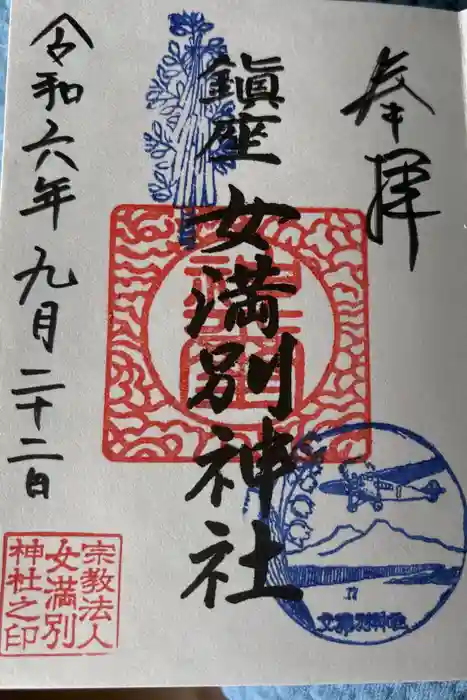 奉拝
鎮座 女満別神社
令和六年九月二十二日
宗教法人
女満別
神社之印
女満別神社